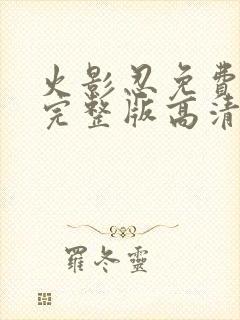 火影忍免費
完整版高清
羅冬靈